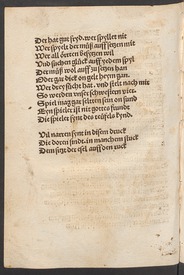 Der hat gut spyl, wer spyllet nit
Wer spyelt der můß auff setzen mit
Wer all örtten besytzen wil
Und suchen glück auff yedem spyl
Der můß wol auff zu setzen han
Oder gar dick on gelt heym gan.
Wer drey sucht hat, und stelt nach mir
So werden unser schwestern vier.
Spiel mag gar seltten sein on sund
Eyn spieler ist nit gottes frundt
Die spieler synt des teüfels kynd.
Vil narren synt in disem druck
Die doren sindt in manchem stuck
Dem setz der esel auff den ruck